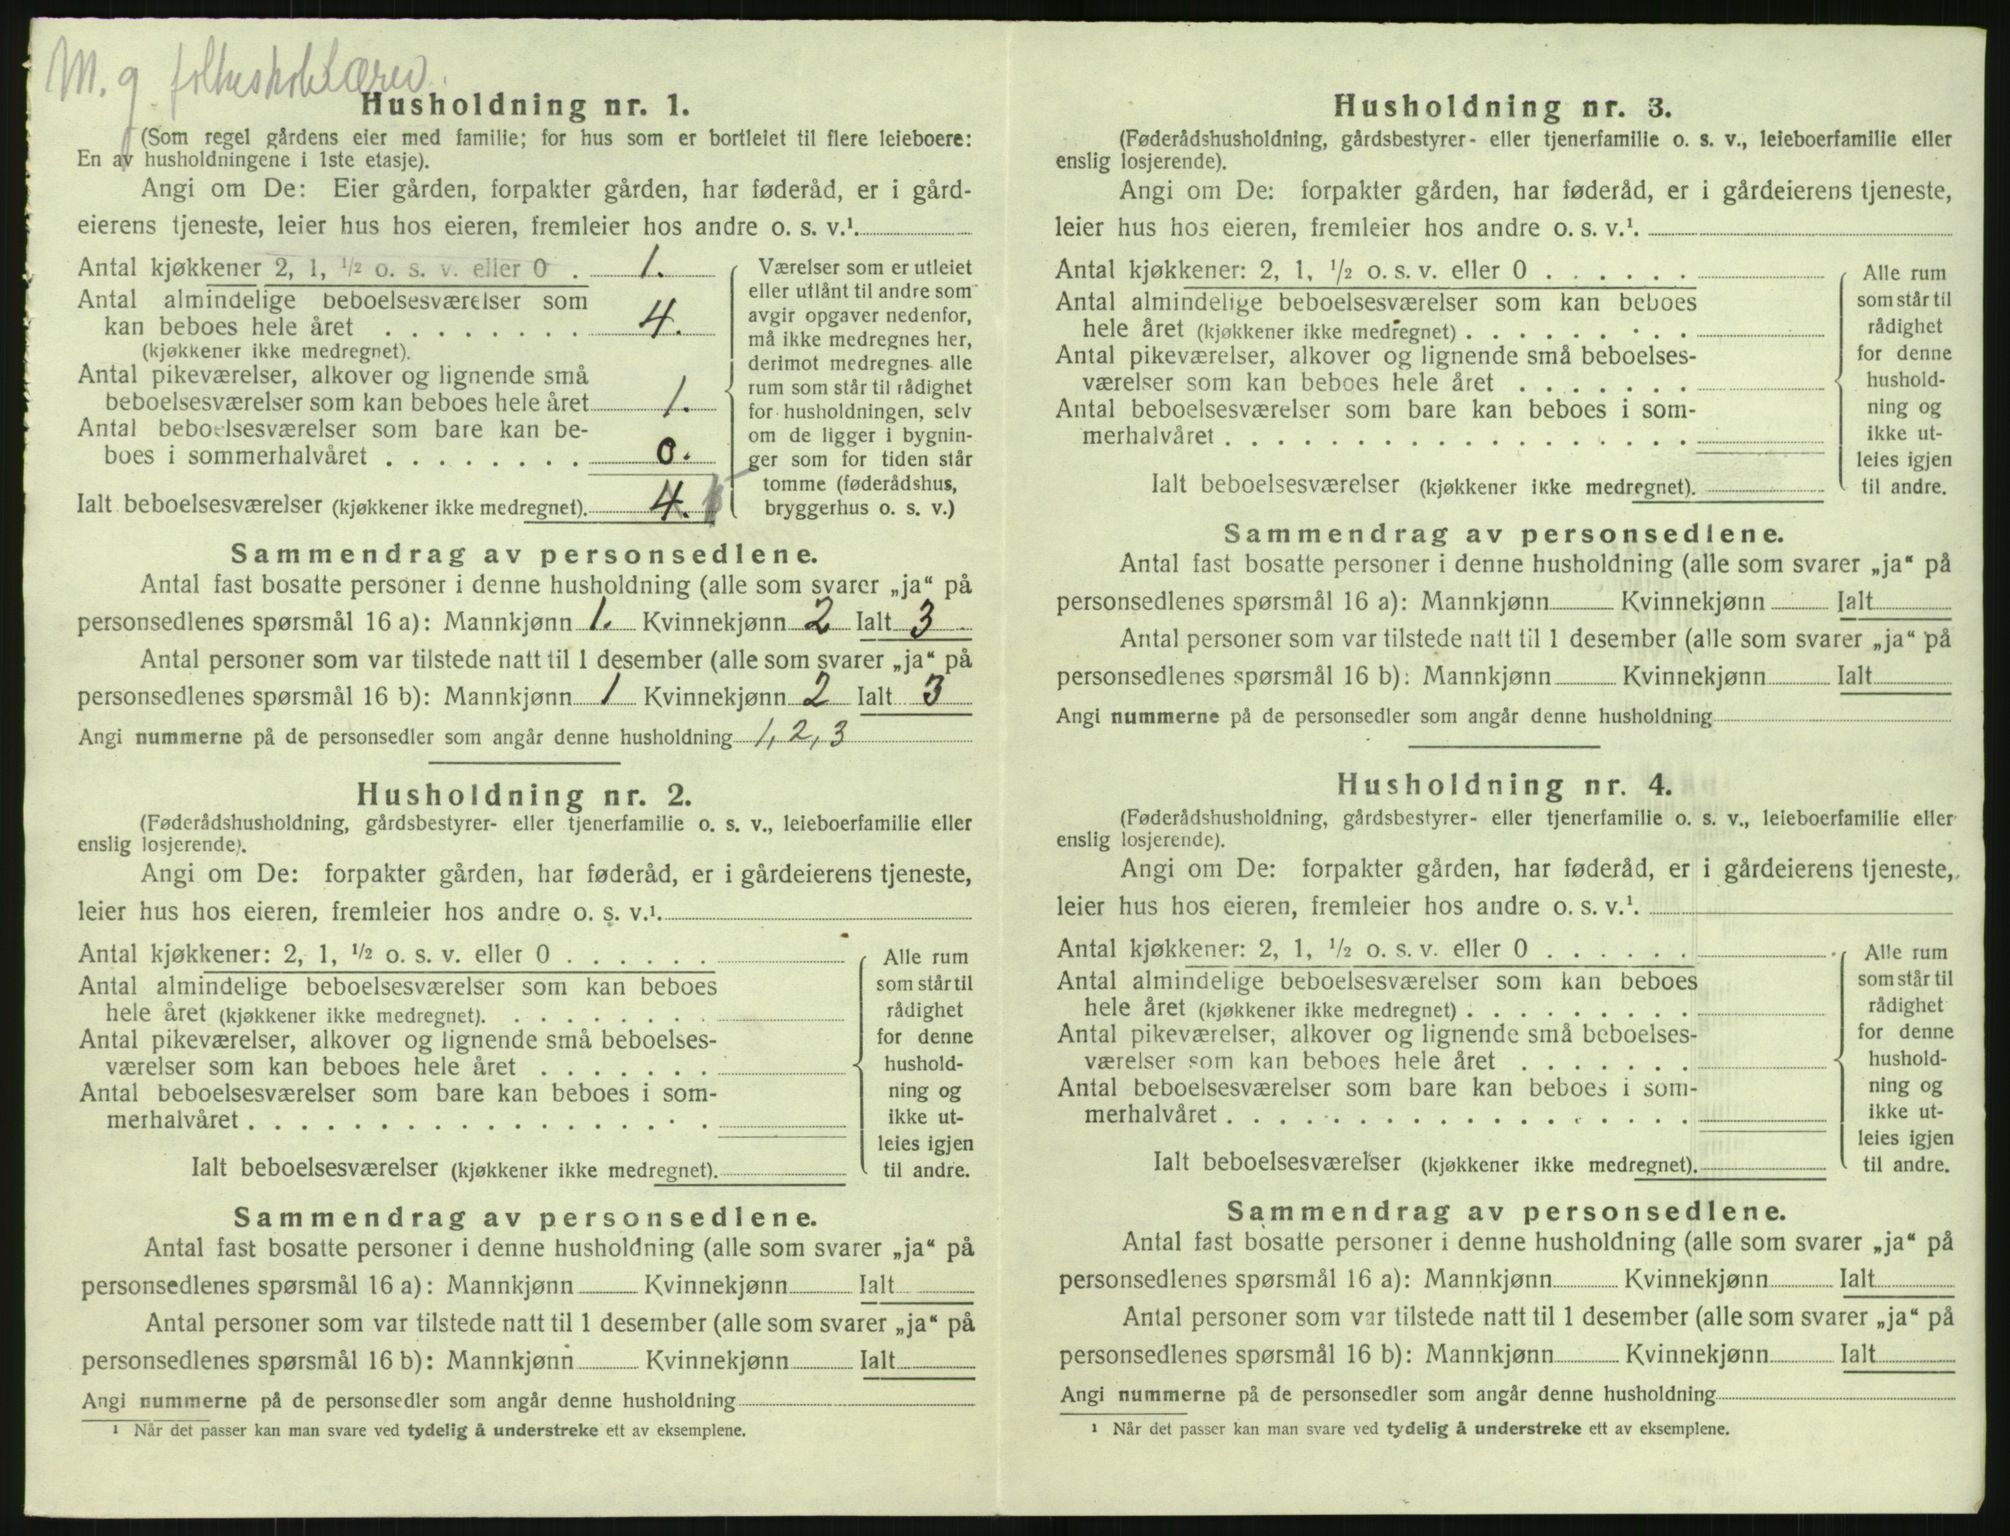 M. g. folkeskolelærer.
Husholdning nr. 1.
(Som regel gårdens eier med familie; for hus som er bortleiet til flere leieboere:
En av husholdningene i 1ste etasje).
Angi om De: Eier gården, forpakter gården, har føderåd, er i gård-
eierens tjeneste, leier hus hos eieren, fremleier hos andre o. s. v.¹.
Antal kjøkkener 2, 1, ½ o. s. v. eller 0 . 1.
Antal almindelige beboelsesværelser som
kan beboes hele året . . . . . . . . 4.
(kjøkkener ikke medregnet).
Antal pikeværelser, alkover og lignende små
beboelsesværelser som kan beboes hele året 1.
Antal beboelsesværelser som bare kan be-
boes i sommerhalvåret . . . . . . . . 0.
Ialt beboelsesværelser (kjøkkener ikke medregnet). 4.
Værelser som er utleiet
eller utlånt til andre som
avgir opgaver nedenfor,
må ikke medregnes her,
derimot medregnes alle
rum som står til rådighet
for husholdningen, selv
om de ligger i bygnin-
ger som for tiden står
tomme (føderådshus,
bryggerhus o. s. v.)
Sammendrag av personsedlene.
Antal fast bosatte personer i denne husholdning (alle som svarer „ja“ på
personsedlenes spørsmål 16 a): Mannkjønn 1. Kvinnekjønn 2 Ialt 3
Antal personer som var tilstede natt til 1 desember (alle som svarer „ja“ på
personsedlenes spørsmål 16 b): Mannkjønn 1 Kvinnekjønn 2 Ialt 3
Angi nummerne på de personsedler som angår denne husholdning 1, 2, 3
Husholdning nr. 2.
(Føderådshusholdning, gårdsbestyrer- eller tjenerfamilie o. s. v., leieboerfamilie eller
enslig losjerende).
Angi om De: forpakter gården, har føderåd, er i gårdeierens tjeneste,
leier hus hos eieren, fremleier hos andre o. s. v.¹.
Antal kjøkkener: 2, 1, ½ o. s. v. eller 0 . . . . . .
Antal almindelige beboelsesværelser som kan beboes
hele året (kjøkkener ikke medregnet). . . . . . . . .
Antal pikeværelser, alkover og lignende små beboelses-
værelser som kan beboes hele året . . . . . . .
Antal beboelsesværelser som bare kan beboes i som-
merhalvåret . . . . . . . . . . . . . . . . . .
Ialt beboelsesværelser (kjøkkener ikke medregnet).
Alle rum
som står til
rådighet
for denne
hushold-
ning og
ikke ut-
leies igjen
til andre.
Sammendrag av personsedlene.
Antal fast bosatte personer i denne husholdning (alle som svarer „ja“ på
personsedlenes spørsmål 16 a): Mannkjønn Kvinnekjønn Ialt
Antal personer som var tilstede natt til 1 desember (alle som svarer „ja“ på
personsedlenes spørsmål 16 b): Mannkjønn Kvinnekjønn Ialt
Angi nummerne på de personsedler som angår denne husholdning
¹ Når det passer kan man svare ved tydelig å understreke ett av eksemplene.
Husholdning nr. 3.
(Føderådshusholdning, gårdsbestyrer- eller tjenerfamilie o. s. v., leieboerfamilie eller
enslig losjerende).
Angi om De: forpakter gården, har føderåd, er i gårdeierens tjeneste,
leier hus hos eieren, fremleier hos andre o. s. v.¹.
Antal kjøkkener: 2, 1, ½ o. s. v. eller 0 . . . . . .
Antal almindelige beboelsesværelser som kan beboes
hele året (kjøkkener ikke medregnet) . . . . . . . . .
Antal pikeværelser, alkover og lignende små beboelses-
værelser som kan beboes hele året . . . . . . .
Antal beboelsesværelser som bare kan beboes i som-
merhalvåret . . . . . . . . . . . . . . . . . .
Ialt beboelsesværelser (kjøkkener ikke medregnet).
Alle rum
som står til
rådighet
for denne
hushold-
ning og
ikke ut-
leies igjen
til andre.
Sammendrag av personsedlene.
Antal fast bosatte personer i denne husholdning (alle som svarer „ja“ på
personsedlenes spørsmål 16 a): Mannkjønn Kvinnekjønn Ialt
Antal personer som var tilstede natt til 1 desember (alle som svarer „ja“ på
personsedlenes spørsmål 16 b): Mannkjønn Kvinnekjønn Ialt
Angi nummerne på de personsedler som angår denne husholdning
Husholdning nr. 4.
(Føderådshusholdning, gårdsbestyrer- eller tjenerfamilie o. s. v., leieboerfamilie eller
enslig losjerende).
Angi om De: forpakter gården, har føderåd, er i gårdeierens tjeneste,
leier hus hos eieren, fremleier hos andre o. s. v.¹.
Antal kjøkkener: 2, 1, ½ o. s. v. eller 0 . . . . . .
Antal almindelige beboelsesværelser som kan beboes
hele året (kjøkkener ikke medregnet) . . . . . . . . .
Antal pikeværelser, alkover og lignende små beboelses-
værelser som kan beboes hele året . . . . . . .
Antal beboelsesværelser som bare kan beboes i som-
merhalvåret . . . . . . . . . . . . . . . . . .
Ialt beboelsesværelser (kjøkkener ikke medregnet).
Alle rum
som står til
rådighet
for denne
hushold-
ning og
ikke ut-
leies igjen
til andre.
Sammendrag av personsedlene.
Antal fast bosatte personer i denne husholdning (alle som svarer „ja“ på
personsedlenes spørsmål 16 a): Mannkjønn Kvinnekjønn Ialt
Antal personer som var tilstede natt til 1 desember (alle som svarer „ja“ på
personsedlenes spørsmål 16 b): Mannkjønn Kvinnekjønn Ialt
Angi nummerne på de personsedler som angår denne husholdning
¹ Når det passer kan man svare ved tydelig å understreke ett av eksemplene.